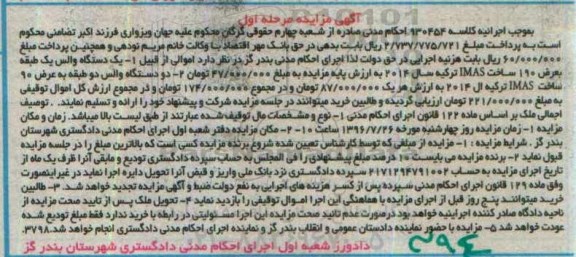 آگهی مزایده مرحله اول
بموجب اجرائیه کلاسه ۹۳۰۴۵۴ احکام مدنی صادره از شعبه چهارم حقوقی گرگان محکوم علیه جهان ویزواری فرزند اکبر تضامنی محکوم
است به پرداخت مبلغ ۲/۷۳۷/۷۷۵/۷۲۱ ریال بابت بدهی در حق بانک مهر اقتصاد با وکالت خانم مریم نودهی و همچنین پرداخت مبلغ
۶۰/۰۰۰/۰۰۰ ریال بابت هزینه اجرایی در حق دولت لذا اجرای احکام مدنی بندر گز در نظر دارد اموالی از قبیل ۱- یک دستگاه والس یک طبقه
بعرض ۱۹۰ ساخت IMAS ترکیه سال ۲۰۱۴ به ارزش پایه مزایده به مبلغ ۴۷/۰۰۰/۰۰۰ تومان ۲- دو دستگاه والس دو طبقه به عرض ۹۰
ساخت IMAS ترکیه ال ۲۰۱۴ به ارزش هر یک ۸۷/۰۰۰/۰۰۰ تومان و در مجموع ۱۷۴/۰۰۰/۰۰۰ تومان و در مجموع ارزش کل اموال توقیفی
به مبلغ ۲۲۱/۰۰۰/۰۰۰ تومان ارزیابی گردیده و طالبین خرید میتوانند در جلسه مزایده شرکت و پیشنهاد خود را ارائه و تسلیم نمایند. توصیف
اجمالی ملک بر اساس ماده ۱۲۲ قانون اجرای احکام مدنی ۱- نوع و مشخصات مال توقیف شده عبارتند از طبق لیست بالا میباشد. زمان و مکان
مزایده ۱- زمان مزایده روز چهارشنبه مورخه ۱۳۹۶/۷/۲۶ ساعت ۱۰ ۲- مکان مزایده دفتر شعبه اول اجرای احکام مدنی دادگستری شهرستان
بندر گز. شرایط مزایده : ۱- مزایده از مبلغی که توسط کارشناس تعیین شده شروع برنده مزایده کسی است که بالاترین مبلغ را در جلسه مزایده
قبول نماید ۲- برنده مزایده می بایست ۱۰ درصد مبلغ پیشنهادی را فی المجلس به حساب سپرده دادگستری تودیع و مابقی آنرا ظرف یک ماه از
تاریخ اجرای مزایده به حساب ۲۱۷۱۲۹۴۷۹۱۰۰۲ سپرده دادگستری نزد بانک ملی واریز و قبض آنرا تحویل دایره اجرا نماید در غیر اینصورت
وفق ماده ۱۲۹ قانون اجرای احکام مدنی سپرده پس از کسر هزینه های اجرایی به نفع دولت ضبط و آگهی مزایده تجدید خواهد شد. ۳- طالبین
خرید میتوانند پنج روز قبل از اجرای مزایده با هماهنگی این اجرا اموال توقیفی را بازدید نماید ۴- تحویل ملک پس از تایید صحت مزایده از
ناحیه دادگاه صادر کننده اجرائیه خواهد بود در صورت عدم تائید صحت مزایده این اجرا مسئولیتی در رابطه با خرید ندارد فقط مبلغ تودیع شده
عودت خواهد شد ۵- مزایده با حضور نماینده دادستان عمومی و انقلاب بندر گز و نماینده اجرای احکام مدنی دادگستری انجام خواهد شد. ۳۷۹۸
دادورز شعبه اول اجرای احکام مدنی دادگستری شهرستان بندر گز